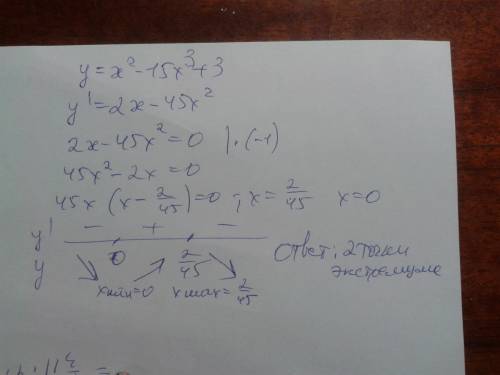 y = x² - 15x³ + 3
y' = 2x - 45x²
2x - 45x² = 0 | · (-1)
45x² - 2x = 0
45x (x - 2/45) = 0 ; x = 2/45 x = 0
y' - + -
0 2/45
y
xmin = 0 xmax = 2/45
Ответ: 2 точки
экстремума